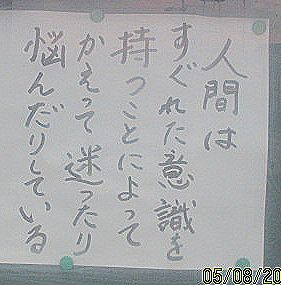 人間は
すぐれた意識を
持つことによって
かえって迷ったり
悩んだりしている
05/08/20